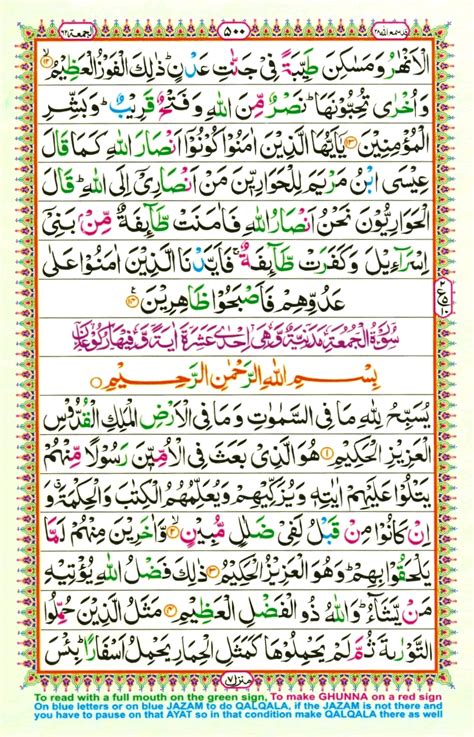 قد سمع الله ٢٨ ٥٠٠ الجمعة ٦٢
الْاَنْهٰرُ وَمَسٰكِنَ طَيِّبَةً فِیْ جَنّٰتِ عَدْنٍ ؕ ذٰلِكَ الْفَوْزُ الْعَظِیْمُ ﴿۱۲﴾
وَاُخْرٰی تُحِبُّوْنَهَا ؕ نَصْرٌ مِّنَ اللّٰهِ وَفَتْحٌ قَرِیْبٌ ؕ وَبَشِّرِ
الْمُؤْمِنِیْنَ ﴿۱۳﴾ یٰۤاَیُّهَا الَّذِیْنَ اٰمَنُوْا كُوْنُوْۤا اَنْصَارَ اللّٰهِ كَمَا قَالَ
عِیْسَی ابْنُ مَرْیَمَ لِلْحَوَارِیّٖنَ مَنْ اَنْصَارِیْۤ اِلَی اللّٰهِ ؕ قَالَ
الْحَوَارِیُّوْنَ نَحْنُ اَنْصَارُ اللّٰهِ فَاٰمَنَتْ طَّآئِفَةٌ مِّنْۢ بَنِیْۤ
اِسْرَآءِیْلَ وَكَفَرَتْ طَّآئِفَةٌ ۚ فَاَیَّدْنَا الَّذِیْنَ اٰمَنُوْا عَلٰی
عَدُوِّهِمْ فَاَصْبَحُوْا ظَاهِرِیْنَ ﴿۱۴﴾
سُوْرَةُ الْجُمُعَةِ مَدَنِیَّةٌ وَّهِیَ اِحْدٰی عَشْرَةَ اٰیَةً وَّفِیْهَا رُكُوْعَانِ
بِسْمِ اللّٰهِ الرَّحْمٰنِ الرَّحِیْمِ
یُسَبِّحُ لِلّٰهِ مَا فِی السَّمٰوٰتِ وَمَا فِی الْاَرْضِ الْمَلِكِ الْقُدُّوْسِ
الْعَزِیْزِ الْحَكِیْمِ ﴿۱﴾ هُوَ الَّذِیْ بَعَثَ فِی الْاُمِّیّٖنَ رَسُوْلًا مِّنْهُمْ
یَتْلُوْا عَلَیْهِمْ اٰیٰتِهٖ وَیُزَكِّیْهِمْ وَیُعَلِّمُهُمُ الْكِتٰبَ وَالْحِكْمَةَ ۗ وَ
اِنْ كَانُوْا مِنْ قَبْلُ لَفِیْ ضَلٰلٍ مُّبِیْنٍ ﴿۲﴾ وَّاٰخَرِیْنَ مِنْهُمْ لَمَّا
یَلْحَقُوْا بِهِمْ ؕ وَهُوَ الْعَزِیْزُ الْحَكِیْمُ ﴿۳﴾ ذٰلِكَ فَضْلُ اللّٰهِ یُؤْتِیْهِ
مَنْ یَّشَآءُ ؕ وَاللّٰهُ ذُو الْفَضْلِ الْعَظِیْمِ ﴿۴﴾ مَثَلُ الَّذِیْنَ حُمِّلُوا
التَّوْرٰىةَ ثُمَّ لَمْ یَحْمِلُوْهَا كَمَثَلِ الْحِمَارِ یَحْمِلُ اَسْفَارًا ؕ بِئْسَ
منزل ٧
To read with a full mouth on the green sign, To make GHUNNA on a red sign
On blue letters or on blue JAZAM to do QALQALA, if the JAZAM is not there and
you have to pause on that AYAT so in that condition make QALQALA there as well